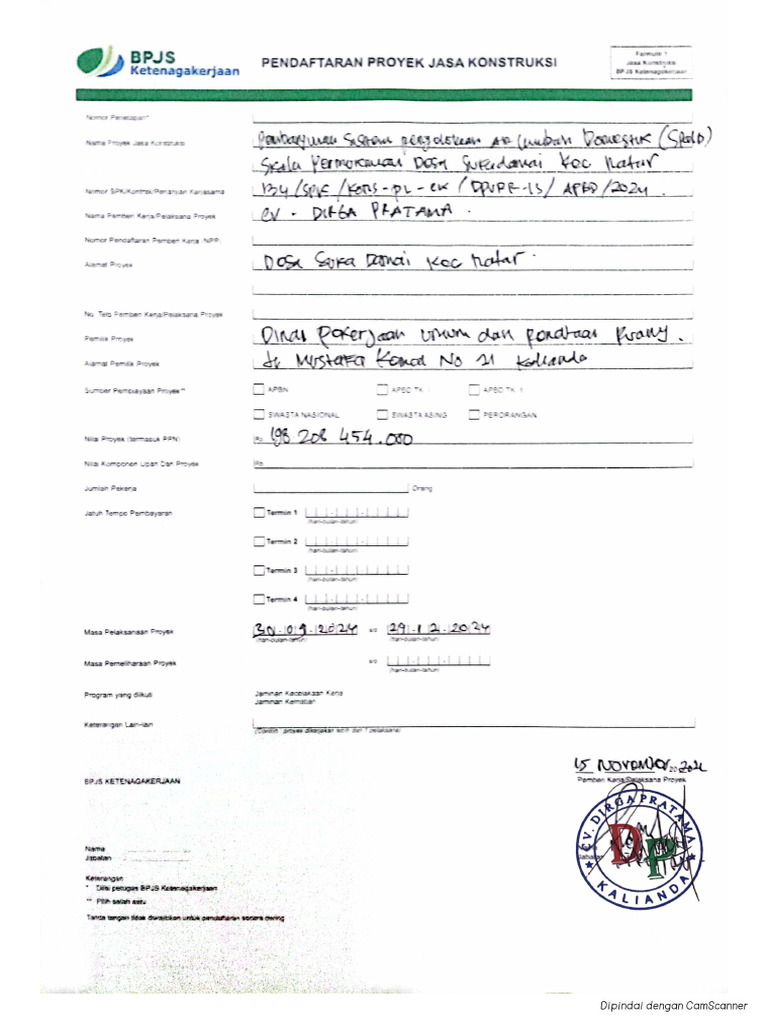 BPJS
Ketenagakerjaan
PENDAFTARAN PROYEK JASA KONSTRUKSI
Formulir 1
Jasa Konstruksi
BPJS Ketenagakerjaan
Nomor Penetapan*
Nama Proyek Jasa Konstruksi Pembangunan Sistem Pengelolaan Air Limbah Domestik (SPALD)
Skala Permukiman Desa Sukadamai Kec Natar
Nomor SPK/Kontrak/Perjanjian Kerjasama 134/SPK/KONS-PL-CK/DPUPR-LS/APBD/2024.
Nama Pemberi Kerja/Pelaksana Proyek CV. DIRGA PRATAMA.
Nomor Pendaftaran Pemberi Kerja (NPP)
Alamat Proyek Desa Suka Damai Kec Natar.
No. Telp Pemberi Kerja/Pelaksana Proyek
Pemilik Proyek Dinas Pekerjaan Umum dan Penataan Ruang.
Alamat Pemilik Proyek Jl. Mustafa Kemal No 21 Kalianda
Sumber Pembiayaan Proyek** APBN APBD TK. I APBD TK. II
SWASTA NASIONAL SWASTA ASING PERORANGAN
Nilai Proyek (termasuk PPN) Rp. 198 208 454.000
Nilai Komponen Upah Dari Proyek Rp.
Jumlah Pekerja Orang
Jatuh Tempo Pembayaran Termin 1
(hari-bulan-tahun)
Termin 2
(hari-bulan-tahun)
Termin 3
(hari-bulan-tahun)
Termin 4
(hari-bulan-tahun)
Masa Pelaksanaan Proyek 30-09-2024 s/d 29-12-2024
(hari-bulan-tahun) (hari-bulan-tahun)
Masa Pemeliharaan Proyek s/d
(hari-bulan-tahun)
Program yang diikuti Jaminan Kecelakaan Kerja
Jaminan Kematian
Keterangan Lain-lain
(Contoh : proyek dikerjakan lebih dari 1 pelaksana)
15 NOVEMBER 2024
BPJS KETENAGAKERJAAN Pemberi Kerja/Pelaksana Proyek
CV. DIRGA PRATAMA
DP
KALIANDA
Nama
Jabatan
Jabatan
Keterangan
* Diisi petugas BPJS Ketenagakerjaan
** Pilih salah satu
Tanda tangan tidak diwajibkan untuk pendaftaran secara daring
Dipindai dengan CamScanner